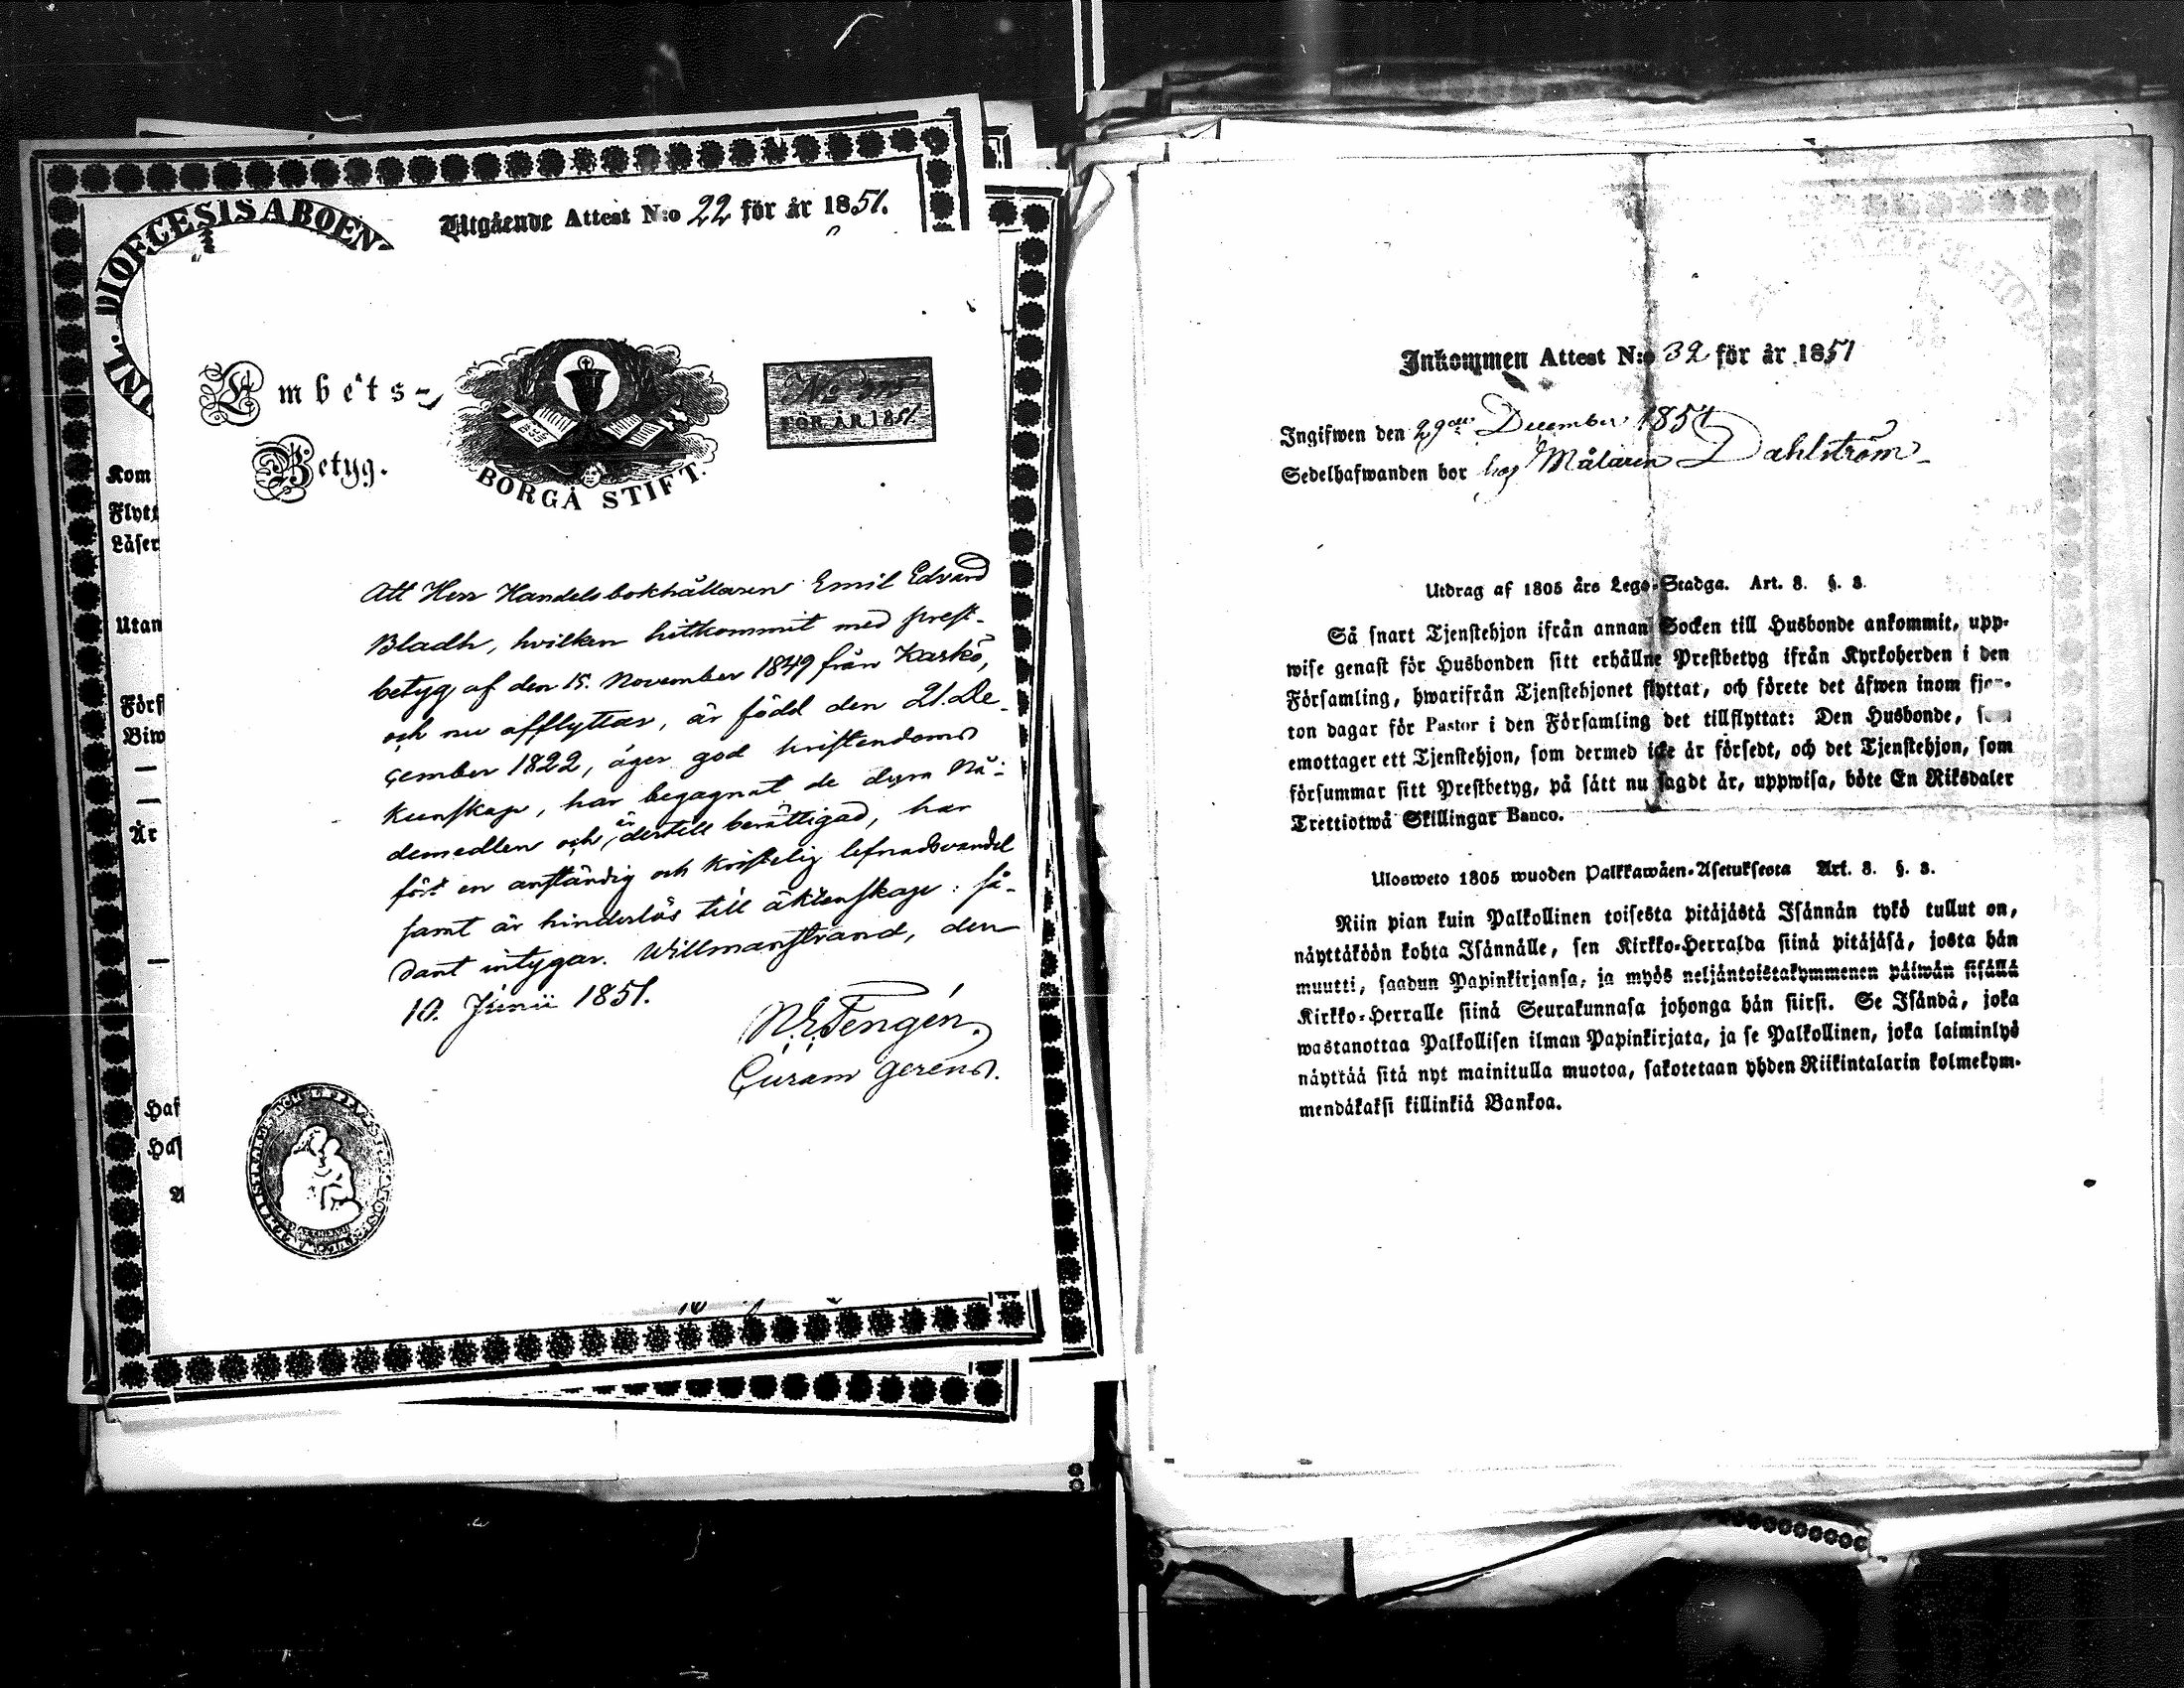 DIOECESIS ABOEN
Utgående Attest N:o 22 för år 1851.
Embets-
Betyg.
BORGÅ STIFT.
FÖR ÅR 1851.
Kom
Flytt
Läser
Utan
Förs
Biw
År
Haf
Haf
Att Herr Handelsbokhållaren Emil Edvard
Bladh, hvilken hitkommit med prest-
betyg af den 15. November 1849 från Kaskö,
och nu afflyttar, är född den 21. De-
cember 1822, äger god kristendoms
kunskap, har begagnat de dyra Nå-
demedlen och är dertill berättigad, har
fört en anständig och kristelig lefnadsvandel
samt är hinderlös till äktenskap: så-
dant intygar. Willmanstrand, den
10. Junii 1851.
Curam gerens.
Inkommen Attest N:o 32 för år 1851
Ingifwen den 29de December 1851
Sedelhafwanden bor hos Målaren Dahlström
Utdrag af 1805 års Lego-Stadga. Art. 3. §. 3.
Så snart Tjenstehjon ifrån annan Socken till Husbonde ankommit, upp-
wise genast för Husbonden sitt erhållne Prestbetyg ifrån Kyrkoherden i den
Församling, hwarifrån Tjenstehjonet flyttat, och förete det äfwen inom fjor-
ton dagar för Pastor i den Församling det tillflyttat: Den Husbonde, som
emottager ett Tjenstehjon, som dermed icke är försedt, och det Tjenstehjon, som
försummar sitt Prestbetyg, på sätt nu sagdt är, uppwisa, böte En Riksdaler
Trettiotwå Skillingar Banco.
Ulosweto 1805 wuoden Palkkawäen-Asetuksesta Art. 3. §. 3.
Niin pian kuin Palkollinen toisesta pitäjästä Isännän tykö tullut on,
näyttäköön kohta Isännälle, sen Kirkko-Herralda siinä pitäjäsä, josta hän
muutti, saadun Papinkirjansa, ja myös neljäntoistakymmenen päiwän sisällä
Kirkko-Herralle siinä Seurakunnasa johonga hän siirsi. Se Isändä, joka
wastanottaa Palkollisen ilman Papinkirjata, ja se Palkollinen, joka laiminlyö
näyttää sitä nyt mainitulla muotoa, sakotetaan yhden Riikintalarin kolmekym-
mendäkaksi killinkiä Bankoa.